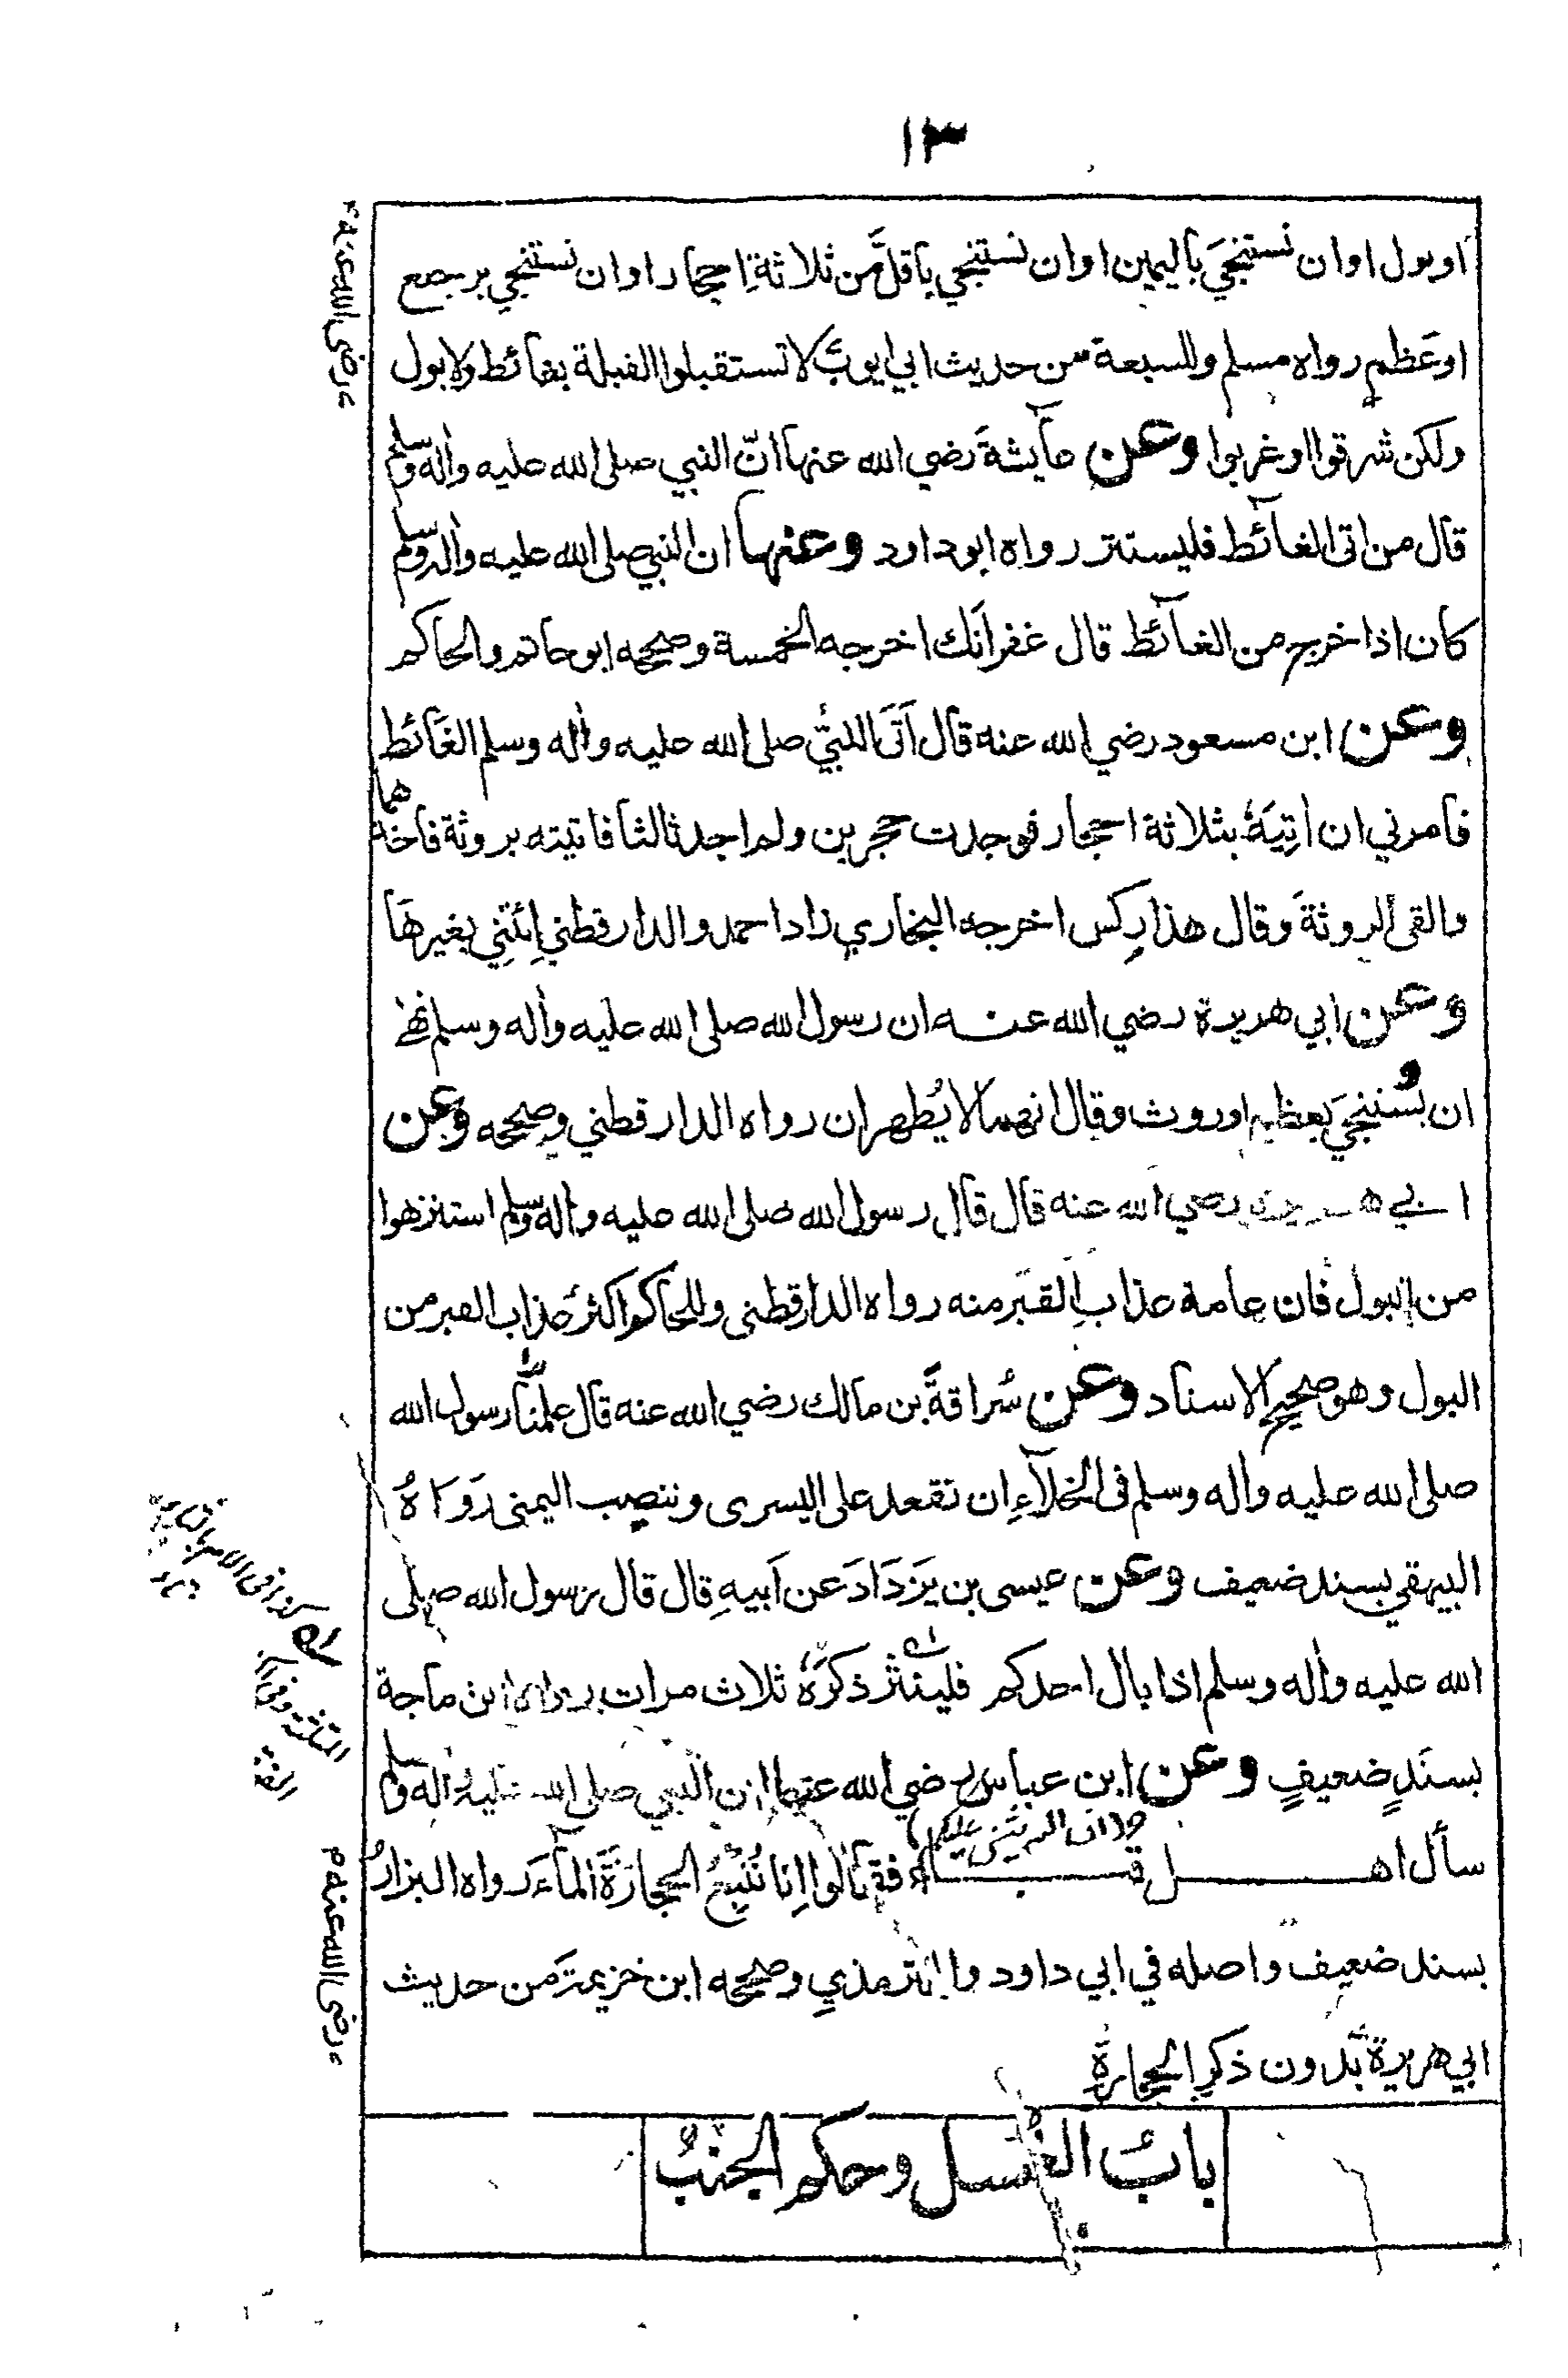 ١٣
او بول او ان نستنجيَ باليمين او ان نستنجي باقلَّ من ثلاثةِ احجار او ان نستنجي برجيع
او عَظم رواه مسلم وللسبعة من حديث ابي ايوبَ لا تستقبلوا القبلة بغائط ولا بول
ولكن شرقوا او غربوا وعن عآيشةَ رضي الله عنها انّ النبي صلى الله عليه واله وسلم
قال من اتى الغآئط فليستتر رواه ابو داود وعنها ان النبي صلى الله عليه واله وسلم
كان اذا خرج من الغآئط قال غفرانَك اخرجه الخمسة وصححه ابو حاتم والحاكم
وعن ابن مسعود رضي الله عنه قال اَتَى النبيُّ صلى الله عليه واله وسلم الغَائطَ
فامرني ان اتِيَهُ بثلاثة احجار فوجدت حجرين ولم اجد ثالثا فاتيته بروثة فاخذهما
والقى الروثةَ وقال هذا رِكس اخرجه البخاري زاد احمد والدارقطني اِئتِني بغيرهَا
وعن ابي هريرة رضي الله عنه ان رسول الله صلى الله عليه واله وسلم نهى
ان يُستنجَي بعظم او روث وقال انهما لا يُطهران رواه الدارقطني وصححه وعن
ابي هريرة رضي الله عنه قال قال رسول الله صلى الله عليه واله وسلم استنزهوا
من البول فان عامة عذابِ القبر منه رواه الدارقطنى وللحاكم اكثرُ عذاب القبر من
البول وهو صحيح الاسناد وعن سُراقةَ بن مالك رضي الله عنه قال علمنا رسول الله
صلى الله عليه واله وسلم فى الخلآءِ ان نقعد على اليسرى وننصب اليمنى رَوَاهُ
البيهقي بسند ضعيف وعن عيسى بن يَزدَادَ عن اَبيهِ قال قال رسول الله صلى
الله عليه واله وسلم اذا بال احدكم فلينثر ذكرَهُ ثلاث مرات رواه ابن ماجة
بسنَدٍ ضعيفٍ وعن ابن عباس رضي الله عنهما ان النبي صلى الله عليه واله وسلم
سأل اهل قباء
(ان الله يثني عليكم)
فقالوا اِنا نُتْبِعُ الحجارَةَ المآءَ رواه البزارُ
بسند ضعيف واصله في ابي داود والترمذيِ وصححه ابن خزيمة من حديث
ابي هريرةَ بدون ذكرِ الحجارةِ
بابُ الغُسل وحكم الجنبُ
رضى الله
رضى الله عنه